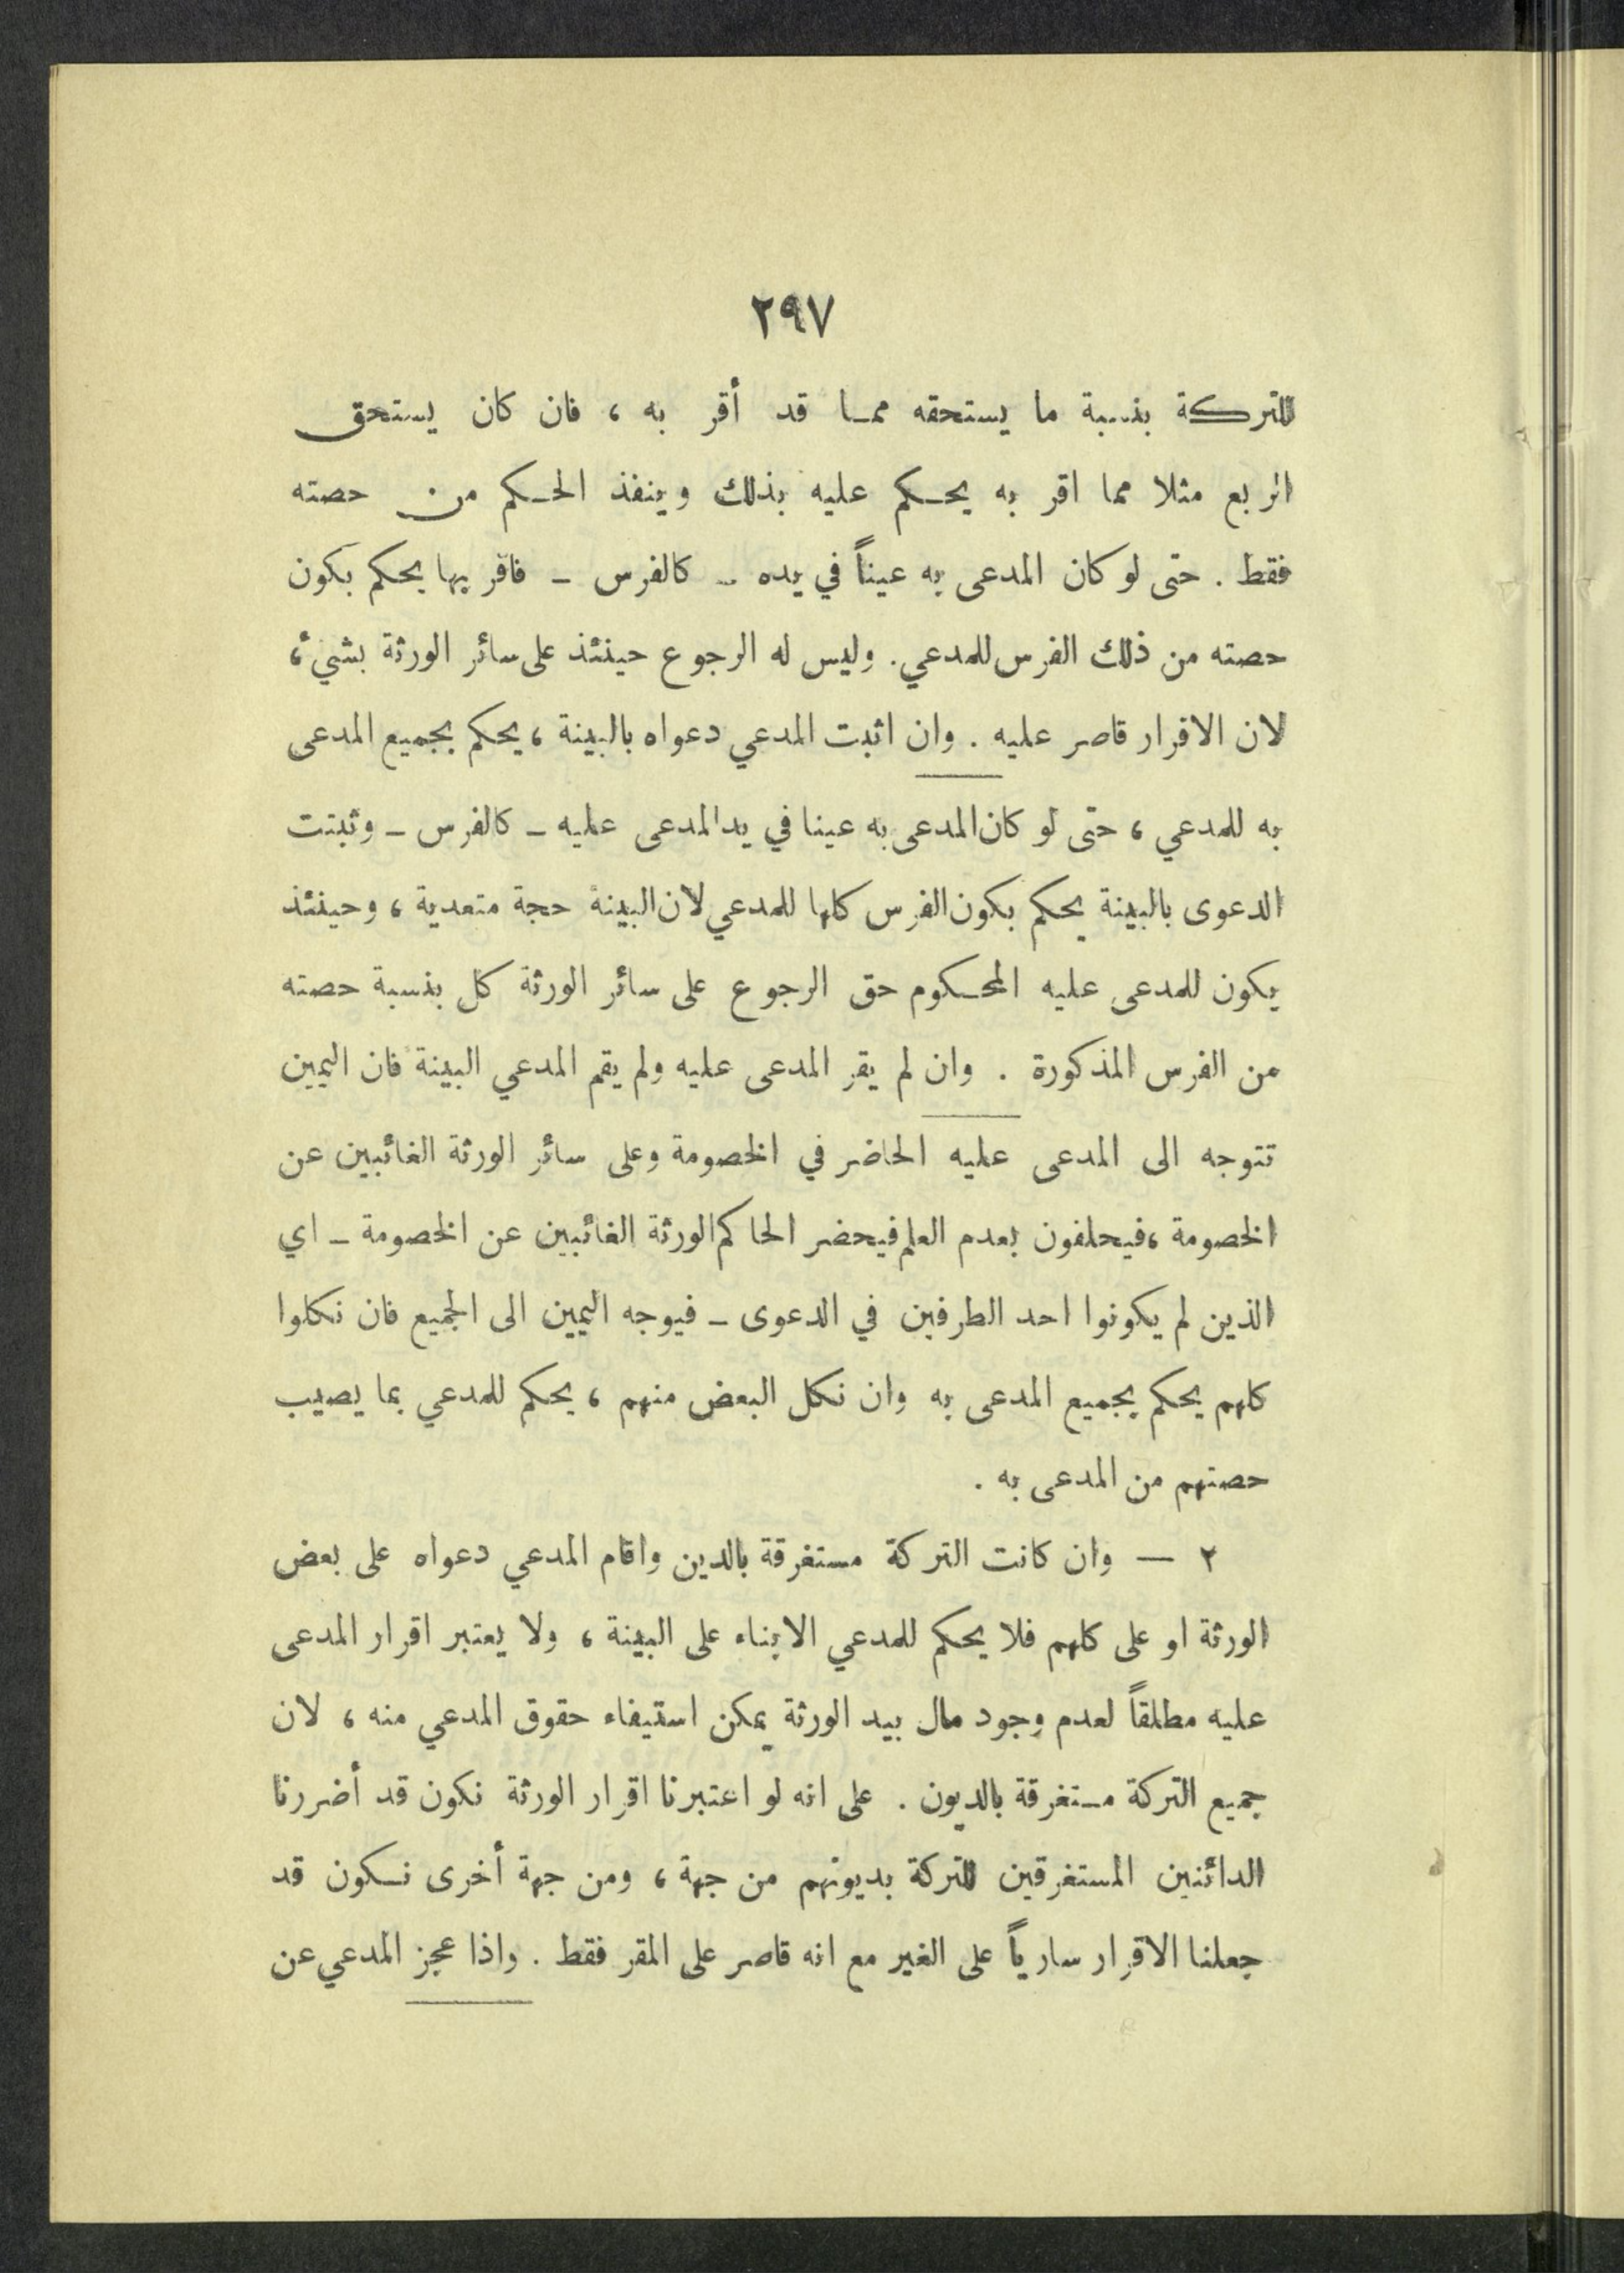 ٢٩٧
للتركة بنسبة ما يستحقه ممـا قد أقر به ، فان كان يستحق
الربع مثلا مما اقر به يحـكم عليه بذلك وينفذ الحـكم من حصته
فقط . حتى لو كان المدعى به عيناً في يده ـ كالفرس ـ فاقر بها يحكم بكون
حصته من ذلك الفرس للمدعي. وليس له الرجوع حينئذ على سائر الورثة بشيء ،
لان الاقرار قاصر عليه . وان اثبت المدعي دعواه بالبينة ، يحكم بجميع المدعى
به للمدعي ، حتى لو كان المدعى به عينا في يد المدعى عليه ـ كالفرس ـ وثبتت
الدعوى بالبينة يحكم بكون الفرس كلها للمدعي لان البينة حجة متعدية ، وحينئذ
يكون للمدعى عليه المحـكوم حق الرجوع على سائر الورثة كل بنسبة حصته
من الفرس المذكورة . وان لم يقر المدعى عليه ولم يقم المدعي البينة فان اليمين
تتوجه الى المدعى عليه الحاضر في الخصومة وعلى سائر الورثة الغائبين عن
الخصومة ، فيحلفون بعدم العلم فيحضر الحاكم الورثة الغائبين عن الخصومة ـ اي
الذين لم يكونوا احد الطرفين في الدعوى ـ فيوجه اليمين الى الجميع فان نكلوا
كلهم يحكم بجميع المدعى به وان نكل البعض منهم ، يحكم للمدعي بما يصيب
حصتهم من المدعى به .
٢ — وان كانت التركة مستغرقة بالدين واقام المدعي دعواه على بعض
الورثة او على كلهم فلا يحكم للمدعي الا بناء على البينة ، ولا يعتبر اقرار المدعى
عليه مطلقاً لعدم وجود مال بيد الورثة يمكن استيفاء حقوق المدعي منه ، لان
جميع التركة مستغرقة بالديون . على انه لو اعتبرنا اقرار الورثة نكون قد أضررنا
الدائنين المستغرقين للتركة بديونهم من جهة ، ومن جهة أخرى نـكون قد
جعلنا الاقرار سارياً على الغير مع انه قاصر على المقر فقط . واذا عجز المدعي عن